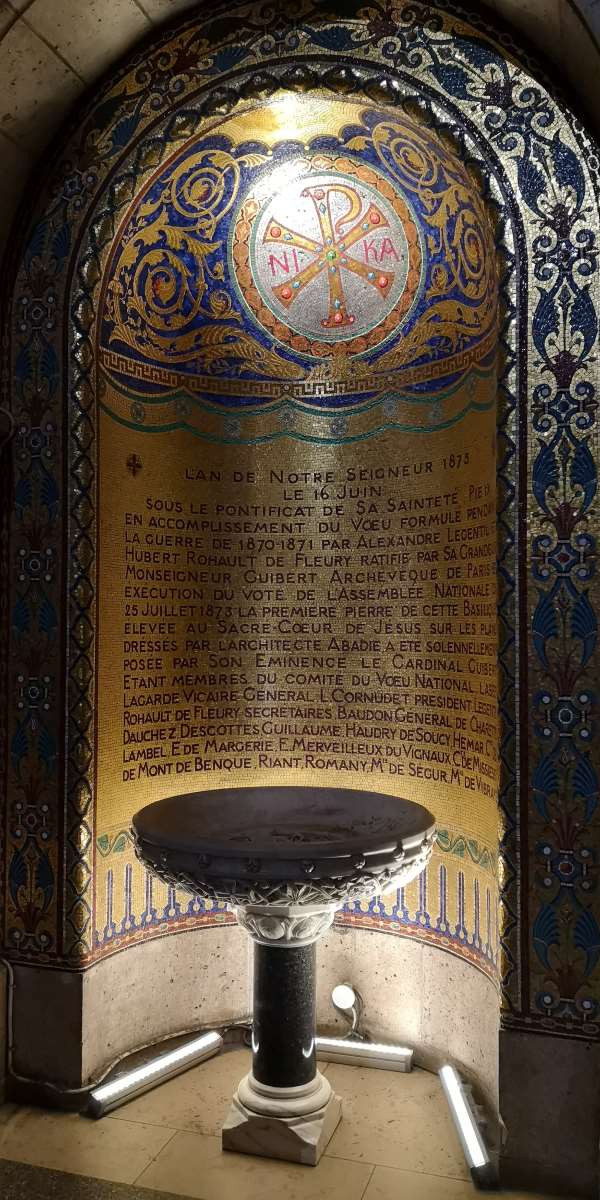 NI KA
LAN DE NOTRE SEIGNEUR 1875
LE 16 JUIN
SOUS LE PONTIFICAT DE SA SAINTETE PIE IX
EN ACCOMPLISSEMENT DU VŒU FORMULE PENDAN
LA GUERRE DE 1870-1871 PAR ALEXANDRE LEGENTIL E
HUBERT ROHAULT DE FLEURY RATIFIE PAR SA GRANDEU
MONSEIGNEUR GUIBERT ARCHEVEQUE DE PARIS E
EXECUTION DU VOTE DE L'ASSEMBLEE NATIONALE D
25 JUILLET 1873 LA PREMIERE PIERRE DE CETTE BASILIQ
ELEVEE AU SACRE-CŒUR DE JESUS SUR LES PLAN
DRESSES PAR L'ARCHITECTE ABADIE A ETE SOLENNELLEMEN
POSEE PAR SON EMINENCE LE CARDINAL GUIBER
ETANT MEMBRES DU COMITE DU VŒU NATIONAL. LABBE
LAGARDE VICAIRE GENERAL. L.CORNUDET PRESIDENT. LEGENTI
ROHAULT DE FLEURY SECRETAIRES. BAUDON. GENERAL DE CHARET
DAUCHEZ. DESCOTTES. GUILLAUME. HAUDRY DE SOUCY. HEMAR. CTE DE
LAMBEL. E. DE MARGERIE. E. MERVEILLEUX DU VIGNAUX. C. DE MUSSIE
DE MONT DE BENQUE, RIANT, ROMANY, MIS DE SEGUR, MIS DE VIBRA